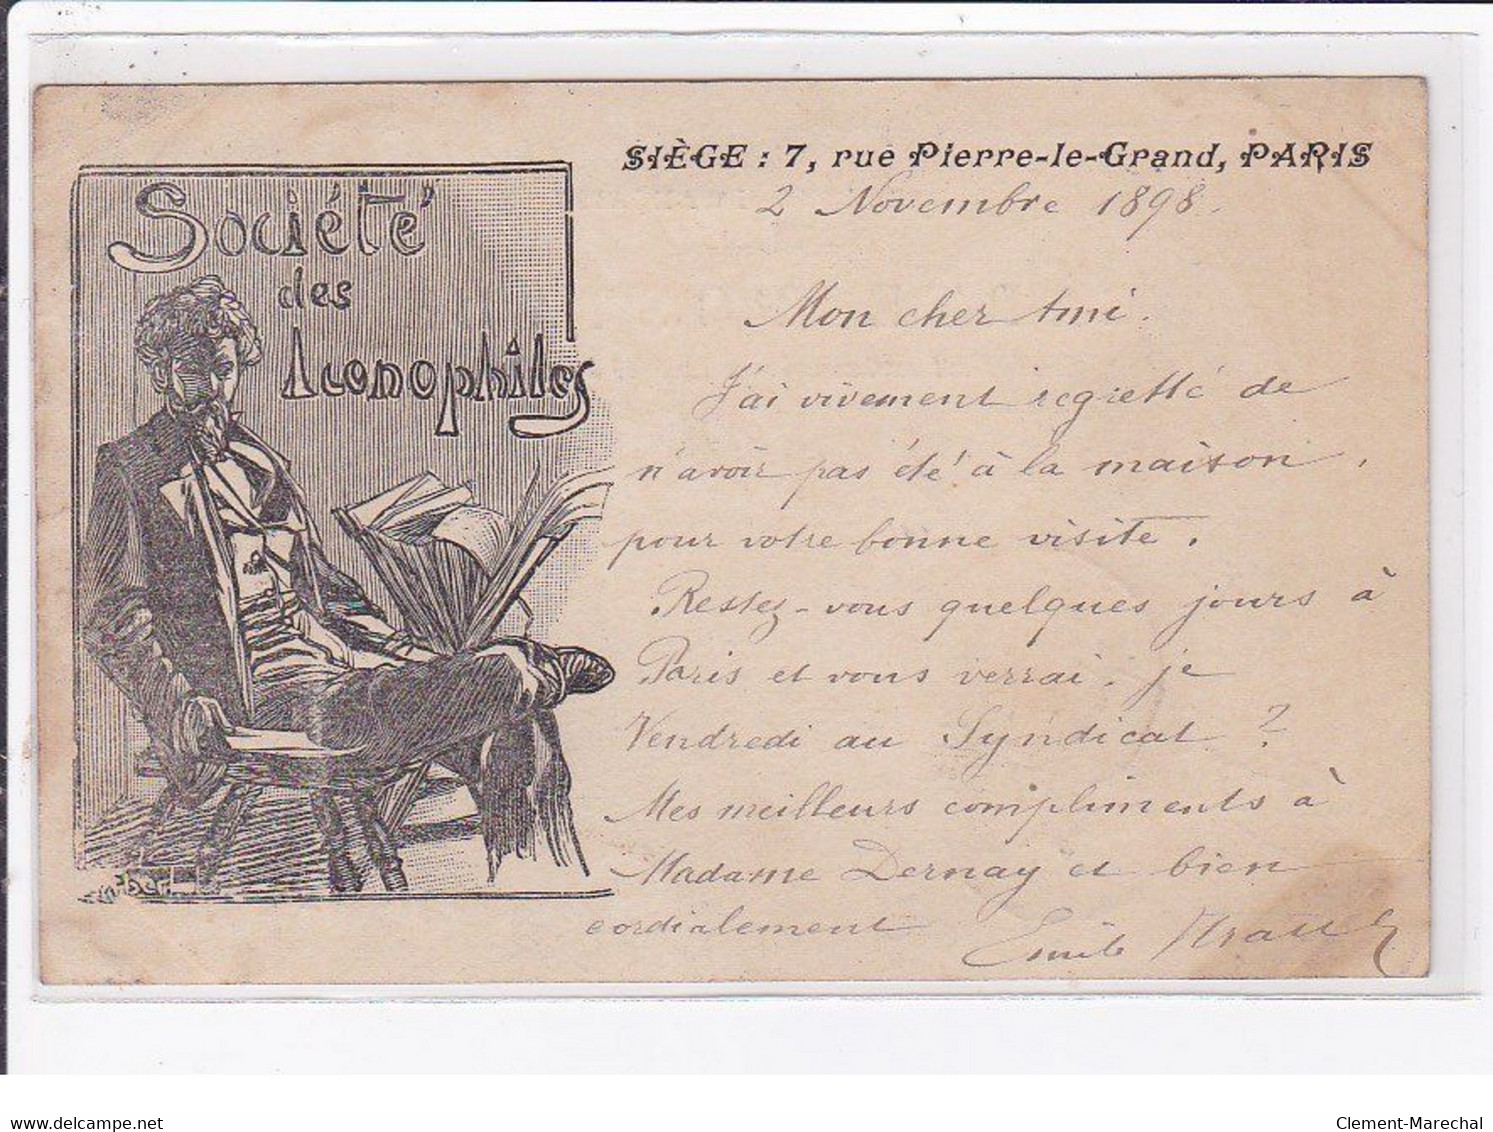 SIÈGE : 7, rue Pierre-le-Grand, PARIS
Société
des
Iconophiles
2 Novembre 1898.
Mon cher Ami.
J'ai vivement regretté de
n'avoir pas été à la maison,
pour votre bonne visite.
Restez-vous quelques jours à
Paris et vous verrai-je
Vendredi au Syndicat ?
Mes meilleurs compliments à
Madame Dernay et bien
cordialement Emile
www.delcampe.net
Clement-Marechal